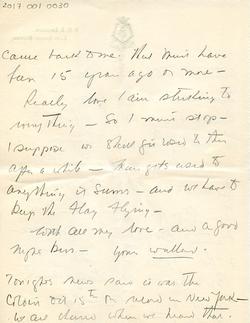 2017 001 0030
came back to me. That must have
been 15 years ago or more—
Really love I am sticking to
everything — So I must stop—
I suppose we shall get used to this
after a while — Man gets used to
anything it seems — and we have to
keep the flag flying—
With all my love — and a good
night kiss — your
Tonights news said it was the
Coldest Oct 15th on record in New York—
we all cheered when we heard that.